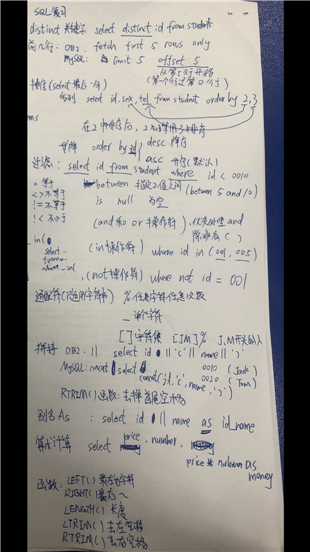 SQL学习
distinct 关键字 select distinct id from student
前一行: DB2: fetch first 5 rows only
MySQL: limit 5 offset 5
从第5行开始
(第一个行是第0行)
排序(select最后一句)
select id, sex, tel from student order by 2,3
ms
在2中排序后, 2相等用3排序
order by desc 降序
asc 升序(默认)
过滤: select id from student where id < 0010
= 等于
<>不等于
!= 不等于
!< 不小于
between 指定2值之间 (between 5 and 10)
is null 为空
(and 和 or 操作符)
(in操作符) where id in (001, 005)
in(
select
(not操作符) where not id = 001
通配符 %任意字符任意次数
_单个字符
[] 字符集 [JM]% J,M开头的人
拼接 DB2: || select id || '(' || name || ')'
MySQL: concat select
concat(id,'(',name,')')
0010 (Jack)
0020 (Tom)
RTRIM()函数: 去掉
别名As : select id || name as id_name
算术计算 select price, number,
price * number as
money
函数: LEFT() 最左的字符
RIGHT() 最右~
LENGTH() 长度
LTRIM() 去左空格
RTRIM() 去右空格